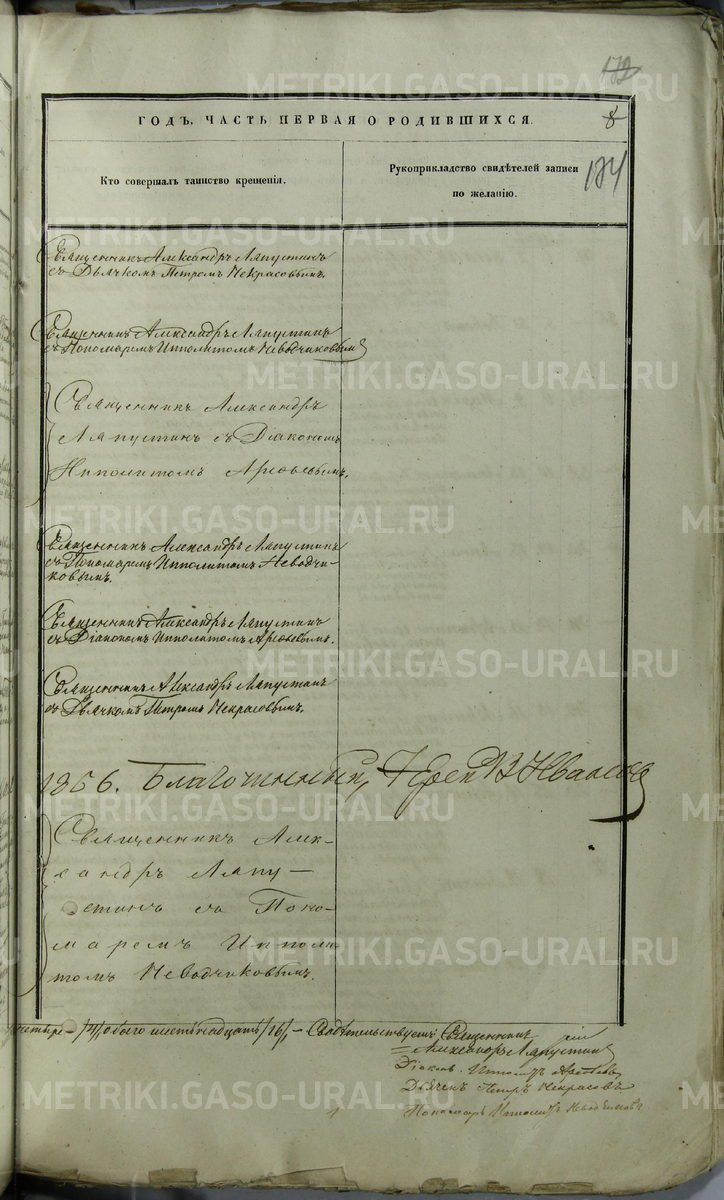 172
METRIKI.GASO-URAL.RU
ГОДЪ, ЧАСТЬ ПЕРВАЯ О РОДИВШИХСЯ.
8
Кто совершалъ таинство крещенія.
Рукоприкладство свидѣтелей записи
по желанію.
174
Священникъ Александръ Ляпустинъ
съ Дьячкомъ Петромъ Некрасовымъ.
Священникъ Александръ Ляпустинъ
съ Пономаремъ Ипполитомъ Неводчиковымъ
Священникъ Александръ
Ляпустинъ съ Діакономъ
Иполитомъ Арефьевымъ.
Священникъ Александръ Ляпустинъ
съ Пономаремъ Ипполитомъ Неводчи-
ковымъ.
Священникъ Александръ Ляпустинъ
съ Діакономъ Ипполитомъ Арефьевымъ.
Священникъ Александръ Ляпустинъ
съ Дьячкомъ Петромъ Некрасовымъ.
1856. Благочинный, Іерей В Ивановъ
Священникъ Алек-
сандръ Ляпу-
стинъ съ Поно-
маремъ Иполи-
томъ Неводчиковымъ.
четыре /4/, обоего шестьнадцать /16/, – Свидѣтельствуемъ: Священникъ
Александръ Ляпустинъ
Діаконъ Ипполитъ Арефьевъ
Дьячекъ Петръ Некрасовъ
Пономарь Ипполитъ Неводчиковъ